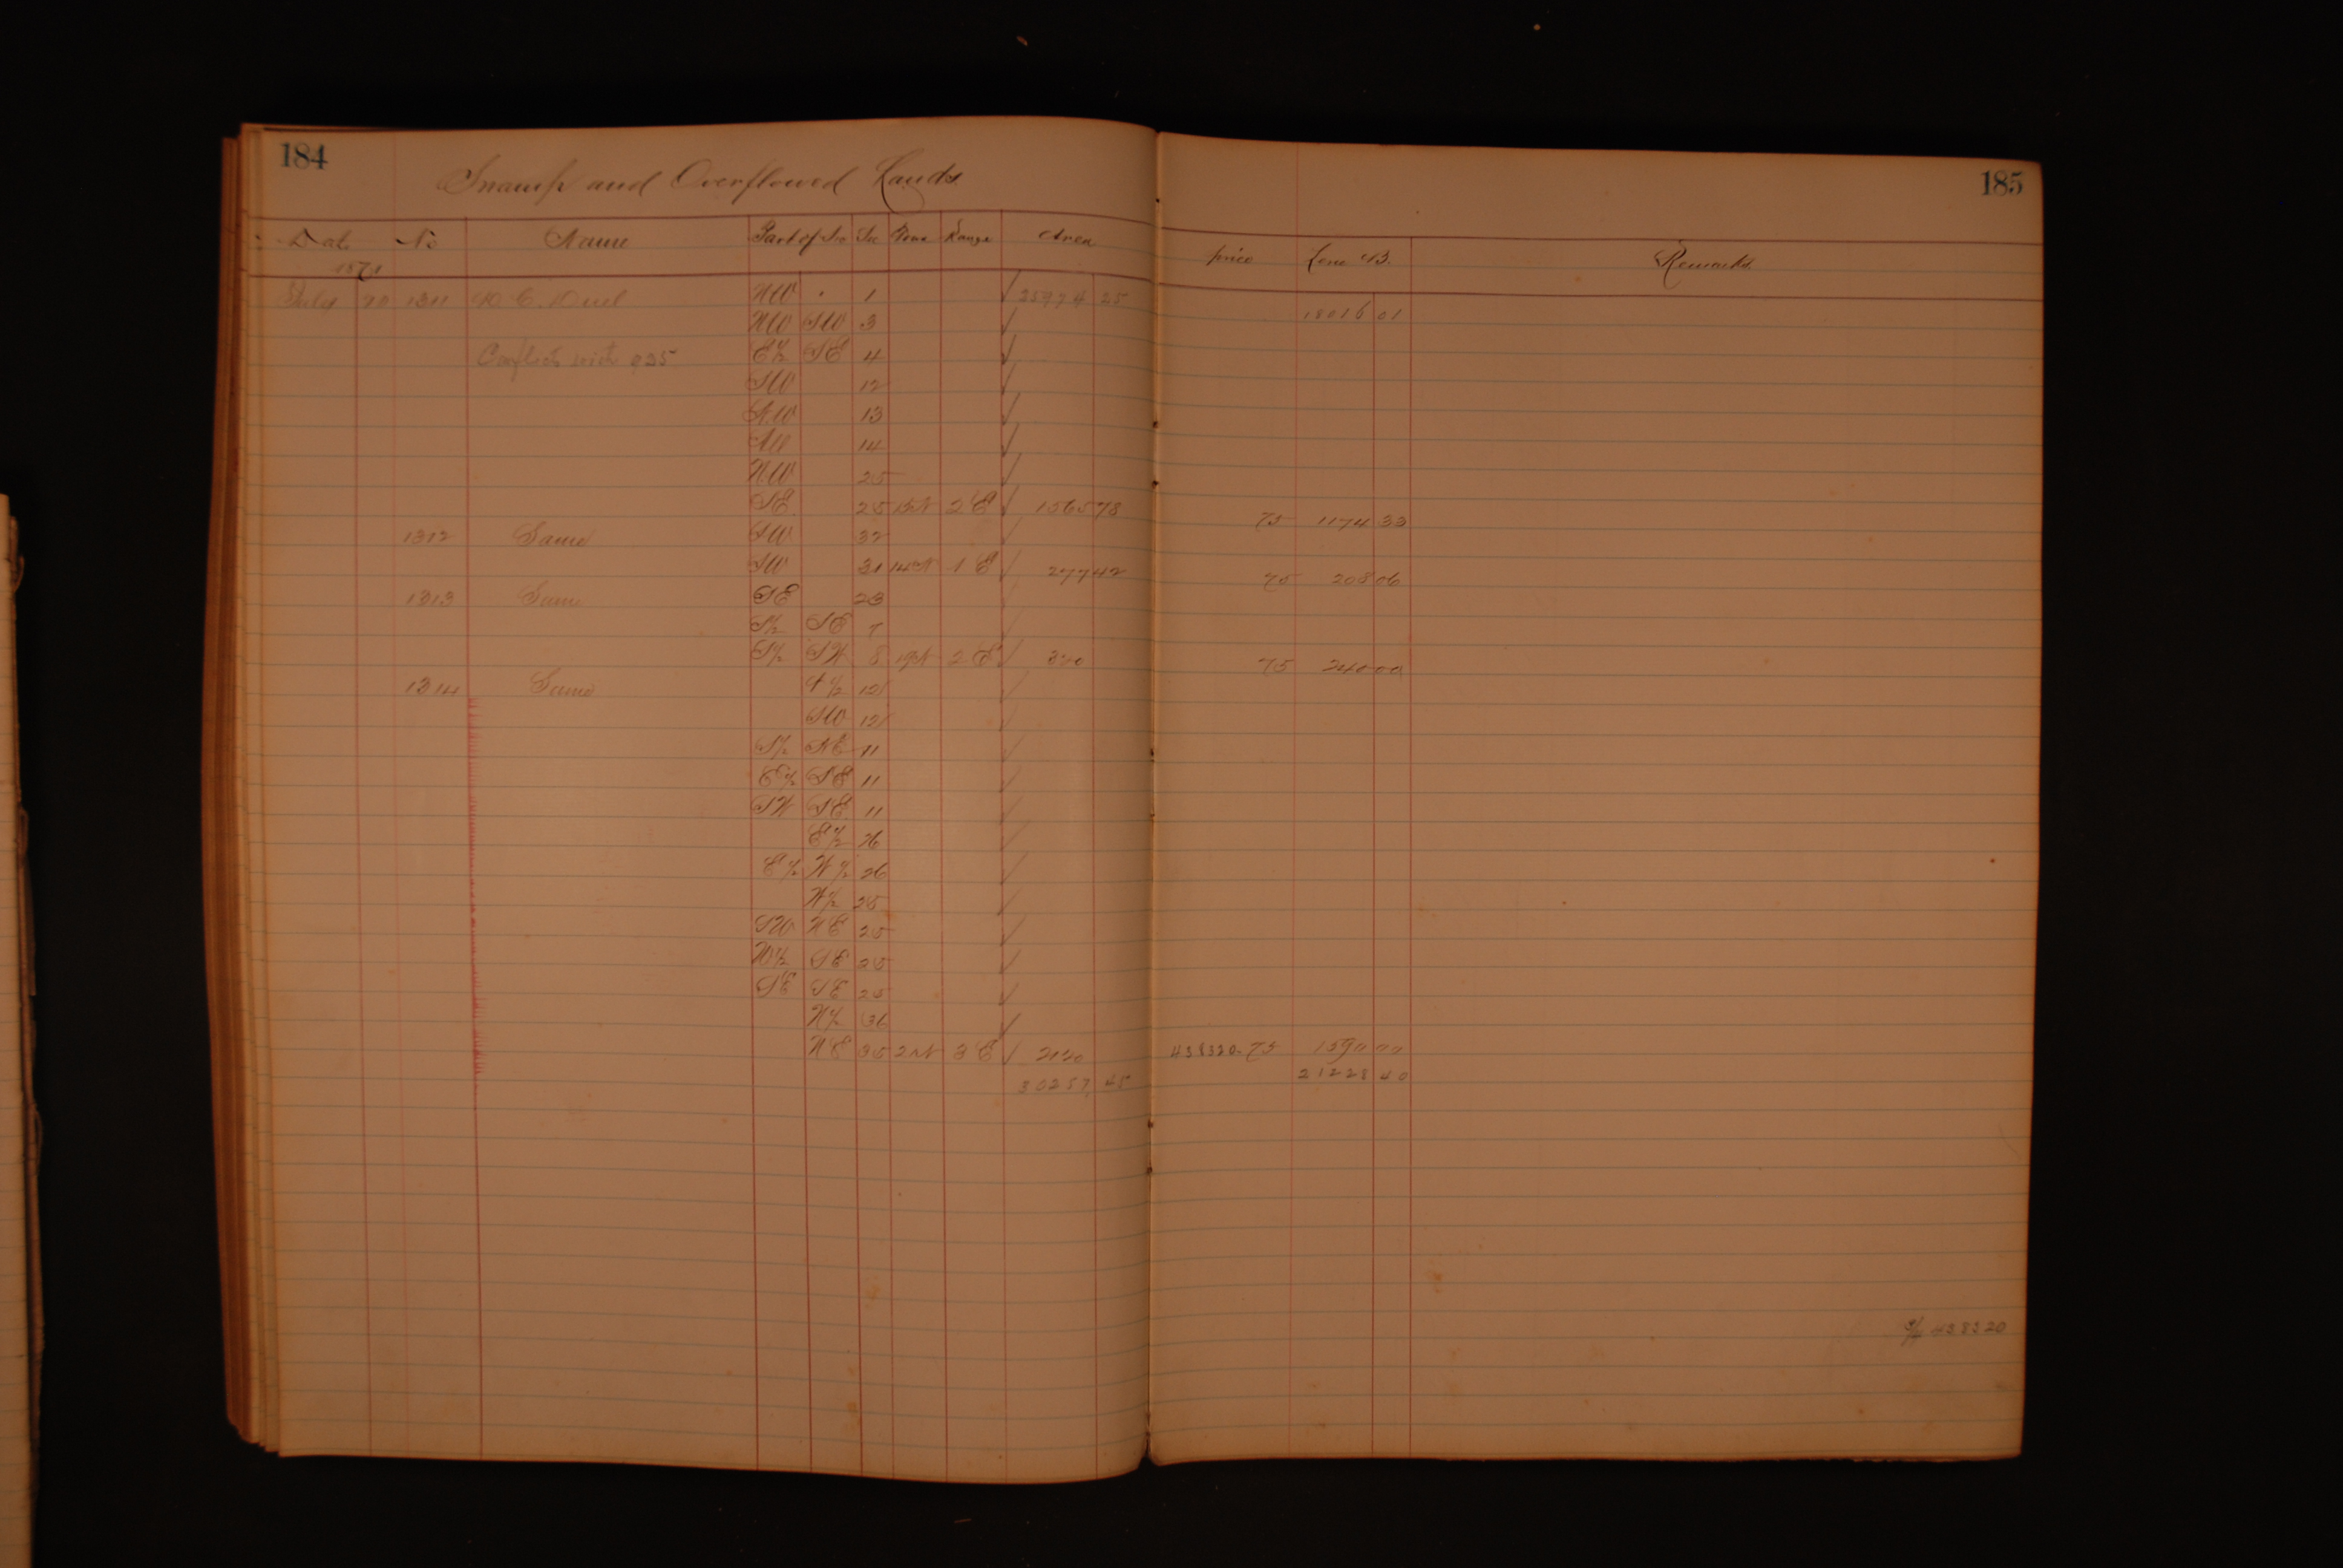 184
Swamp and Overflowed Lands.
185
Date No Name Part of Sec Sec Town Range Area price Cone 43. Remarks.
1871
July 20 1311 NW 1 ✓ 25974 25 18016 01
NW SW 3 ✓
Conflicts with 925 E½ SE 4 ✓
SW 12 ✓
N.W 13 ✓
All 14 ✓
N.W 25 ✓
SE 25 13N 2 E ✓ 1565 78 75 1174 33
1312 Same SW 32 ✓
SW 31 14N 1 E ✓ 277 42 75 208 06
1313 Same SE 23 ✓
S½ SE 7 ✓
S½ SW 8 19N 2 E ✓ 320 75 240 00
1314 Same 12 ✓
SW 12 ✓
S½ NE 11 ✓
E½ SE 11 ✓
SW SE 11 ✓
E½ 26 ✓
E½ W½ 26 ✓
W½ 25 ✓
SW NE 25 ✓
W½ SE 25 ✓
SE SE 25 ✓
N½ 36 ✓
NE 35 2N 3 E ✓ 2120 438320. 75 1590 00
30257, 45 21228 40
438320